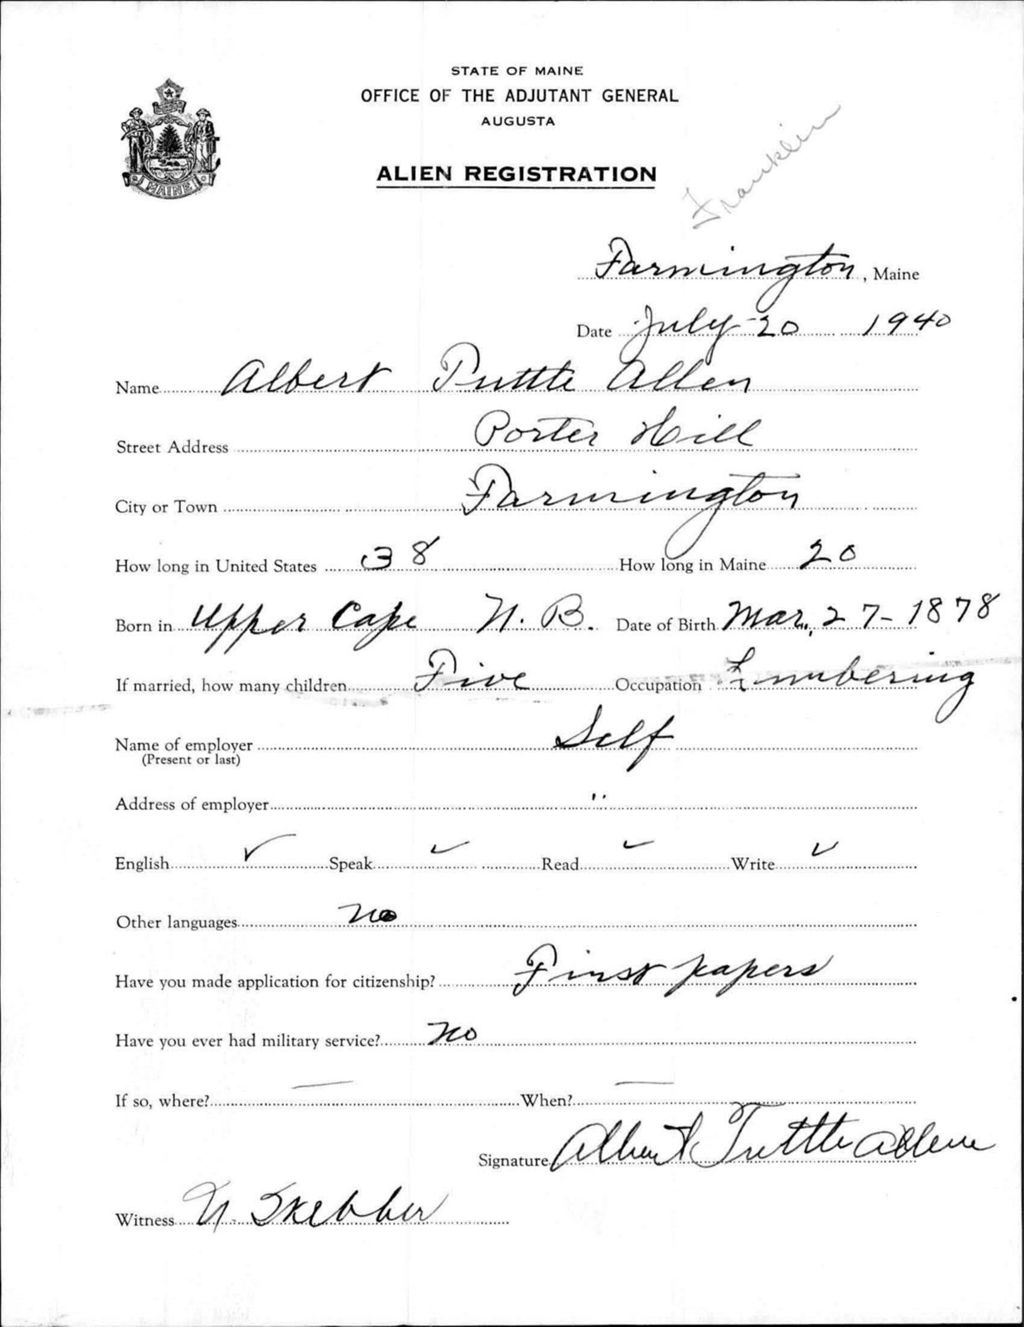 STATE OF MAINE
OFFICE OF THE ADJUTANT GENERAL
AUGUSTA
ALIEN REGISTRATION
Franklin
MAINE
Farmington, Maine
Date July 20 1940
Name Albert Tuttle Allen
Street Address Porter Hill
City or Town Farmington
How long in United States 38 How long in Maine 20
Born in Upper Cape N. B. Date of Birth Mar. 27-1878
If married, how many children Five Occupation Lumbering
Name of employer Self
(Present or last)
Address of employer "
English ✓ Speak ✓ Read ✓ Write ✓
Other languages no
Have you made application for citizenship? First papers
Have you ever had military service? no
If so, where? — When? —
Signature Albert Tuttle Allen
Witness